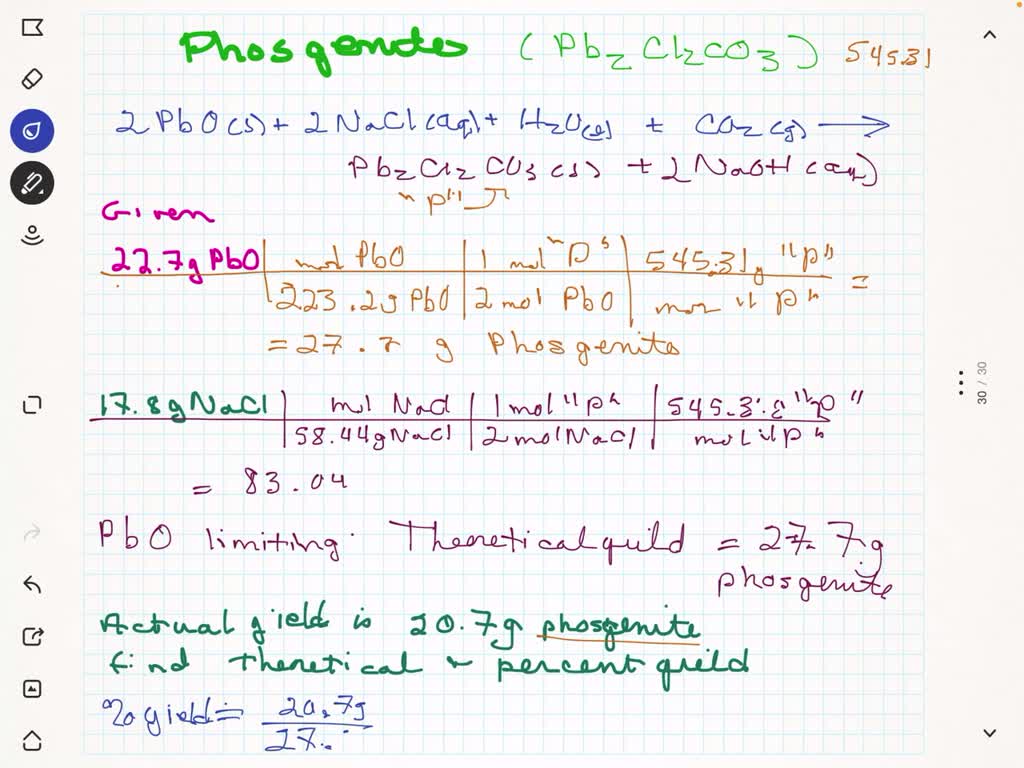 Phosgenites (Pb2Cl2CO3) 545.31
2PbO(s) + 2NaCl(aq) + H2O(l) + CO2(g) →
Pb2Cl2CO3(s) + 2NaOH(aq)
"P"
Given
22.7g PbO | mol PbO | 1 mol "P" | 545.31g "P" =
223.2g PbO | 2 mol PbO | mol "P"
= 27.7 g Phosgenite
17.8g NaCl | mol NaCl | 1 mol "P" | 545.31g "P"
58.44g NaCl | 2 mol NaCl | mol "P"
= 83.04
PbO limiting. Theoretical yield = 27.7g
phosgenite
Actual yield is 20.7g phosgenite
find theretical & percent yield
% yield = 20.7g
27.
30 / 30